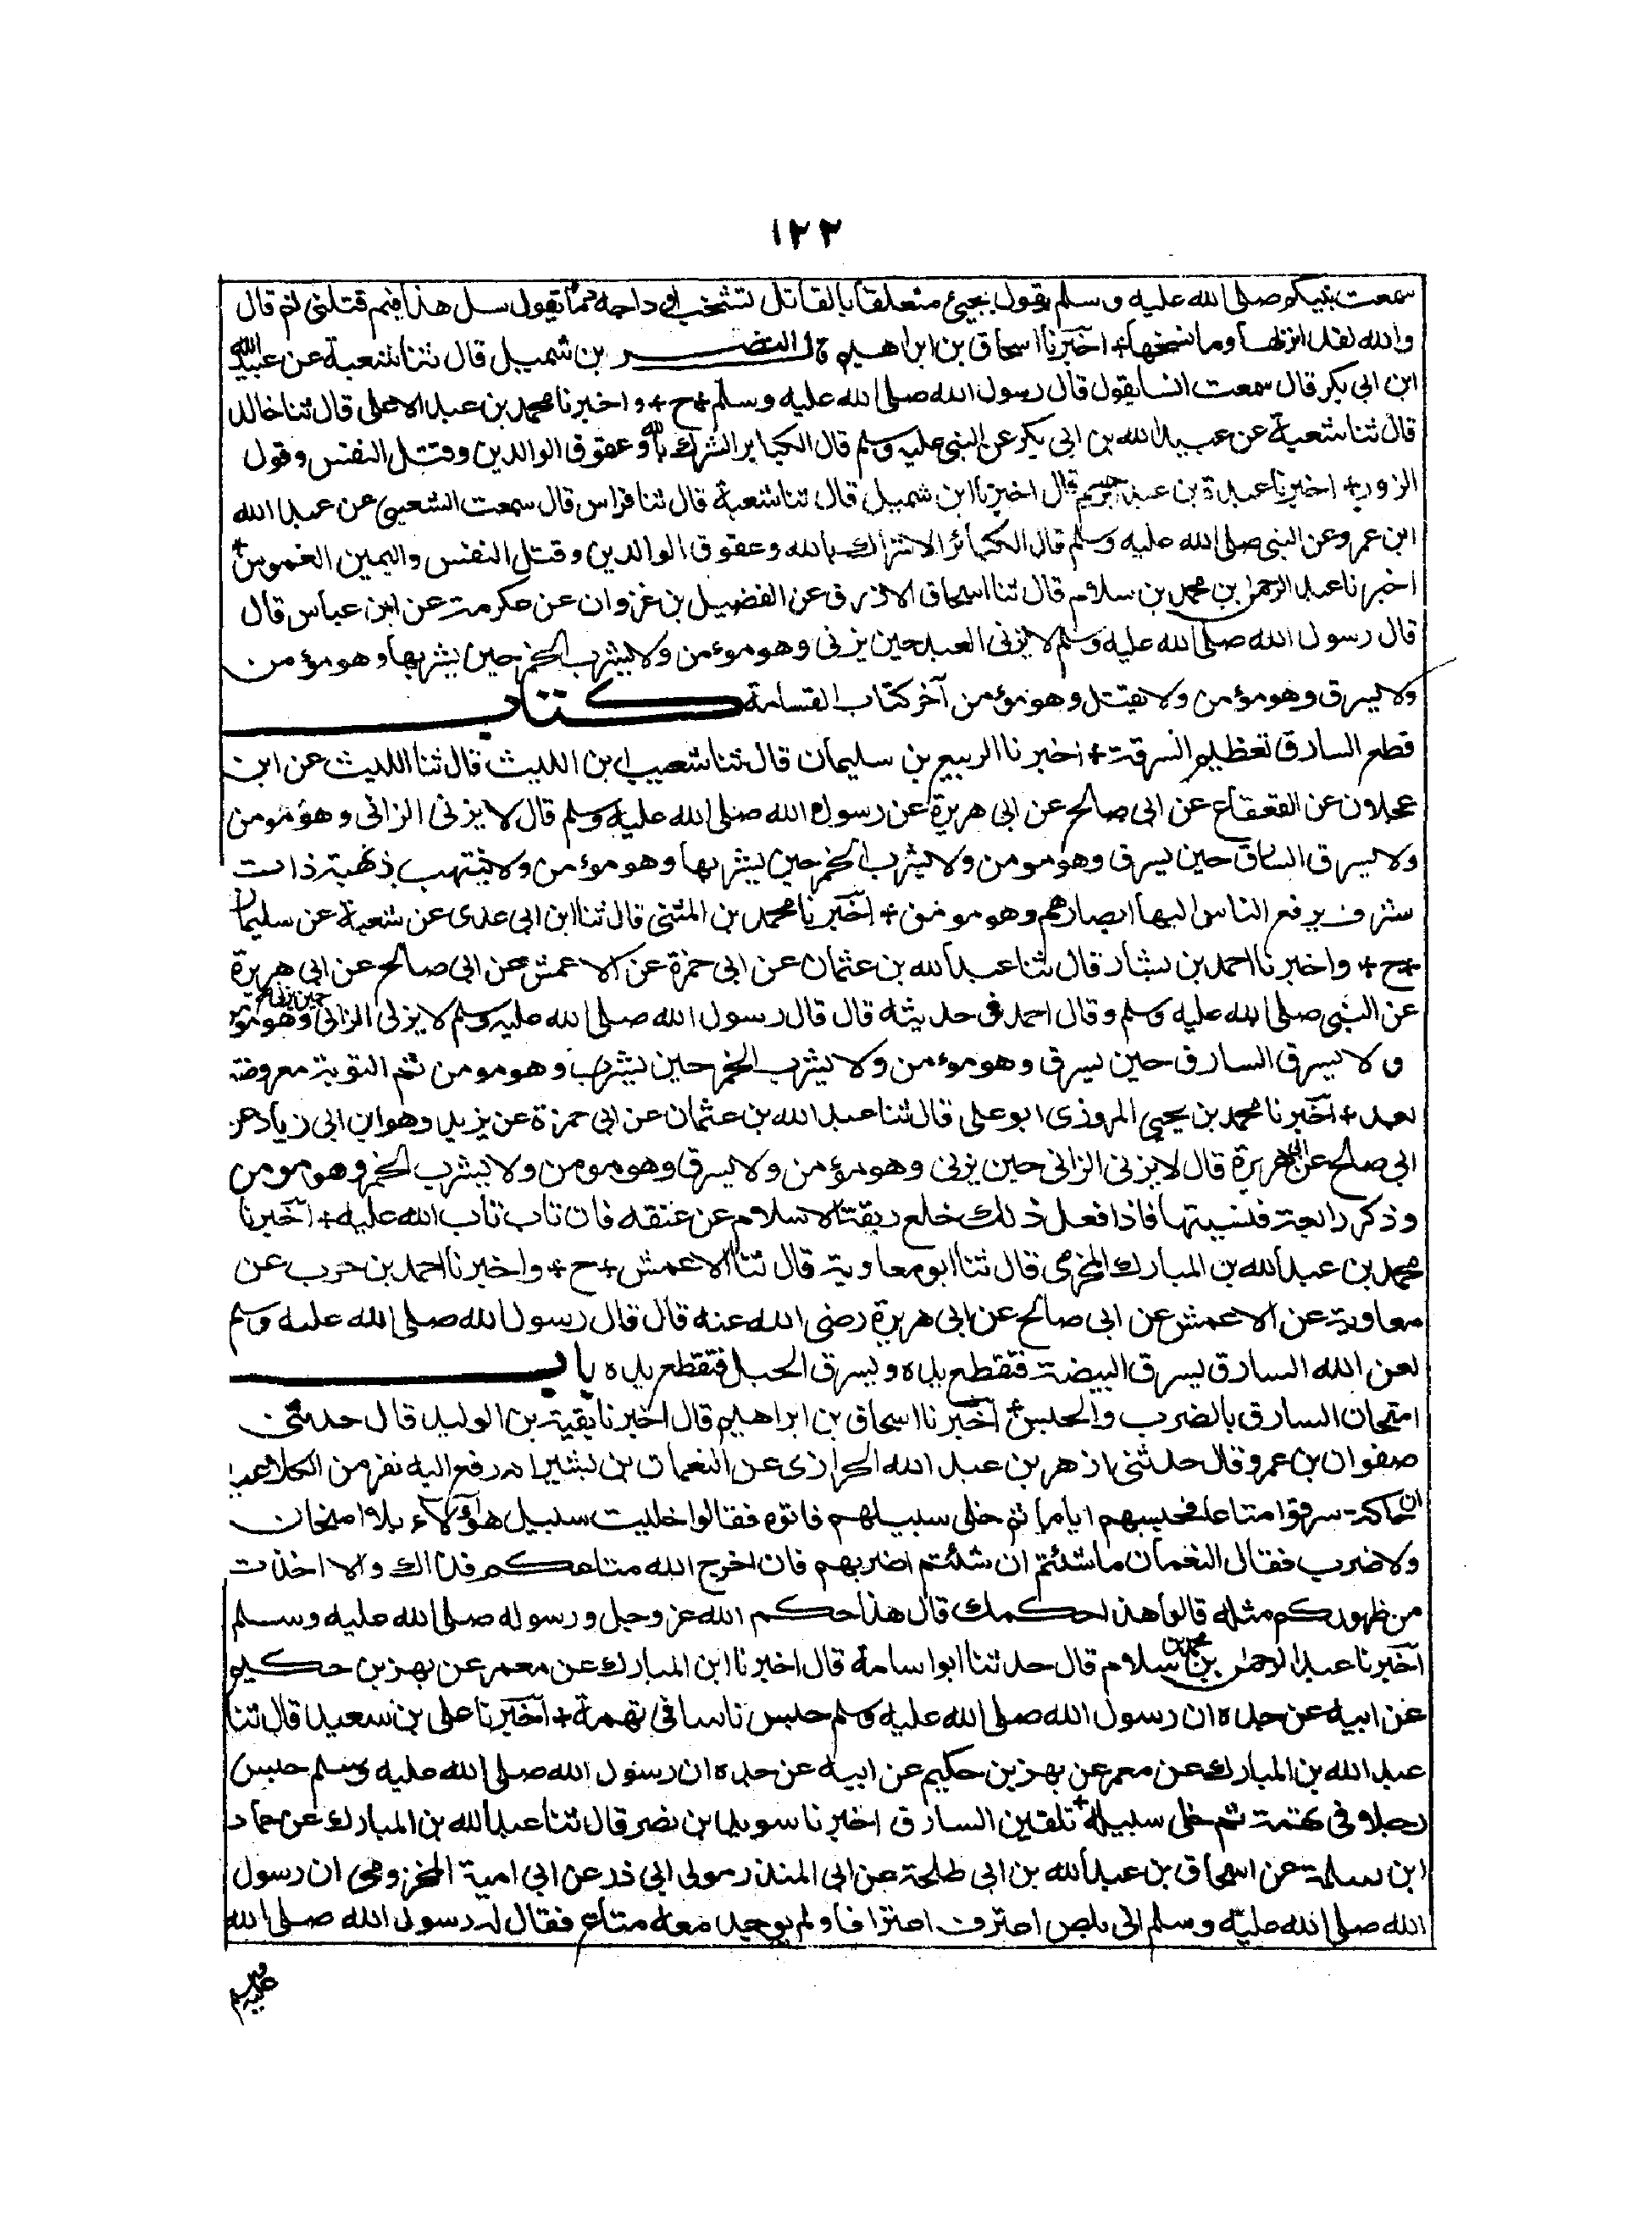 ١٢٣
سمعت نبيكم صلى الله عليه وسلم يقول يجيئ متعلقا بالقاتل تشخب اوداجه دما يقول سل هذا فيم قتلني ثم قال
والله لقد انزلها وما نسخها + اخبرنا اسحاق بن ابراهيم قال النضر بن شميل قال ثنا شعبة عن عبيد الله
ابن ابي بكر قال سمعت انسا يقول قال رسول الله صلى الله عليه وسلم + ح + واخبرنا محمد بن عبد الاعلى قال ثنا خالد
قال ثنا شعبة عن عبيد الله بن ابي بكر عن النبي عليه وسلم قال الكباير الشرك بالله وعقوق الوالدين وقتل النفس وقول
الزور + اخبرنا عبدة بن عبد الرحيم قال اخبرنا ابن شميل قال ثنا شعبة قال ثنا فراس قال سمعت الشعبي عن عبد الله
ابن عمرو عن النبي صلى الله عليه وسلم قال الكبائر الاشراك بالله وعقوق الوالدين وقتل النفس واليمين الغموس +
اخبرنا عبد الرحمن بن محمد بن سلام قال ثنا اسحاق الازرق عن الفضيل بن غزوان عن عكرمت عن ابن عباس قال
قال رسول الله صلى الله عليه وسلم لا يزني العبد حين يزني وهو موءمن ولا يشرب الخمر حين يشربها وهو مؤمن
ولا يسرق وهو مؤمن ولا يقتل وهو مؤمن آخر كتاب القسامة كتاب
قطع السارق تعظيم السرقت + اخبرنا الربيع بن سليمان قال ثنا شعيب ابن الليث قال ثنا الليث عن ابن
عجلان عن القعقاع عن ابي صالح عن ابي هريرة عن رسول الله صلى الله عليه وسلم قال لا يزني الزاني وهو مومن
ولا يسرق السارق حين يسرق وهو مومن ولا يشرب الخمر حين يشربها وهو موءمن ولا ينتهب نهبة ذات
شرف يرفع الناس اليها ابصارهم وهو مومن + اخبرنا محمد بن المثنى قال ثنا ابن ابي عدى عن شعبة عن سليمان
+ ح + واخبرنا احمد بن سيار قال ثنا عبد الله بن عثمان عن ابي حمزة عن الاعمش عن ابي صالح عن ابي هريرة
عن النبي صلى الله عليه وسلم وقال احمد في حديثه قال قال رسول الله صلى الله عليه وسلم لا يزني الزاني حين يزني وهو مومن
ولا يسرق السارق حين يسرق وهو موءمن ولا يشرب الخمر حين يشرب وهو مومن ثم التوبة معروضة
بعد + اخبرنا محمد بن يحيى المروزى ابو على قال ثنا عبد الله بن عثمان عن ابي حمزة عن يزيد وهو ابن ابي زياد عن
ابي صالح عن ابي هريرة قال لا يزني الزاني حين يزني وهو مؤمن ولا يسرق وهو مومن ولا يشرب الخمر وهو مومن
وذكر رابعة فنسيتها فاذا فعل ذلك خلع ربقة الاسلام عن عنقه فان تاب تاب الله عليه + اخبرنا
محمد بن عبد الله بن المبارك المخرمى قال ثنا ابو معاوية قال ثنا الاعمش + ح + واخبرنا احمد بن حرب عن
معاوية عن الاعمش عن ابي صالح عن ابي هريرة رضى الله عنه قال قال رسول الله صلى الله عليه وسلم
لعن الله السارق يسرق البيضة فتقطع يده ويسرق الحبل فتقطع يده باب
امتحان السارق بالضرب والحبس + اخبرنا اسحاق بن ابراهيم قال اخبرنا بقية بن الوليد قال حدثني
صفوان بن عمرو قال حدثني ازهر بن عبد الله الحرازى عن النعمان بن بشير انه رفع اليه نفر من الكلاعيين
ان حاكة سرقوا متاعا فحبسهم اياما ثم خلى سبيلهم فاتوه فقالوا خليت سبيل هؤلاء بلا امتحان
ولا ضرب فقال النعمان ما شئتم ان شئتم اضربهم فان اخرج الله متاعكم فذاك والا اخذت
من ظهوركم مثله قالوا هذا حكمك قال هذا حكم الله عز وجل ورسوله صلى الله عليه وسلم
اخبرنا عبد الرحمن بن محمد بن سلام قال حدثنا ابو اسامة قال اخبرنا ابن المبارك عن معمر عن بهز بن حكيم
عن ابيه عن جده ان رسول الله صلى الله عليه وسلم حبس ناسا في تهمة + اخبرنا على بن سعيد قال ثنا
عبد الله بن المبارك عن معمر عن بهز بن حكيم عن ابيه عن جده ان رسول الله صلى الله عليه وسلم حبس
رجلا في تهمة ثم خلى سبيله + تلقين السارق اخبرنا سويد بن نصر قال ثنا عبد الله بن المبارك عن حماد
ابن سلمة عن اسحاق بن عبد الله بن ابي طلحة عن ابي المنذر مولى ابي ذر عن ابي امية المخزومى ان رسول
الله صلى الله عليه وسلم اتى بلص اعترف اعترافا ولم يوجد معه متاع فقال له رسول الله صلى الله
عليه وسلم